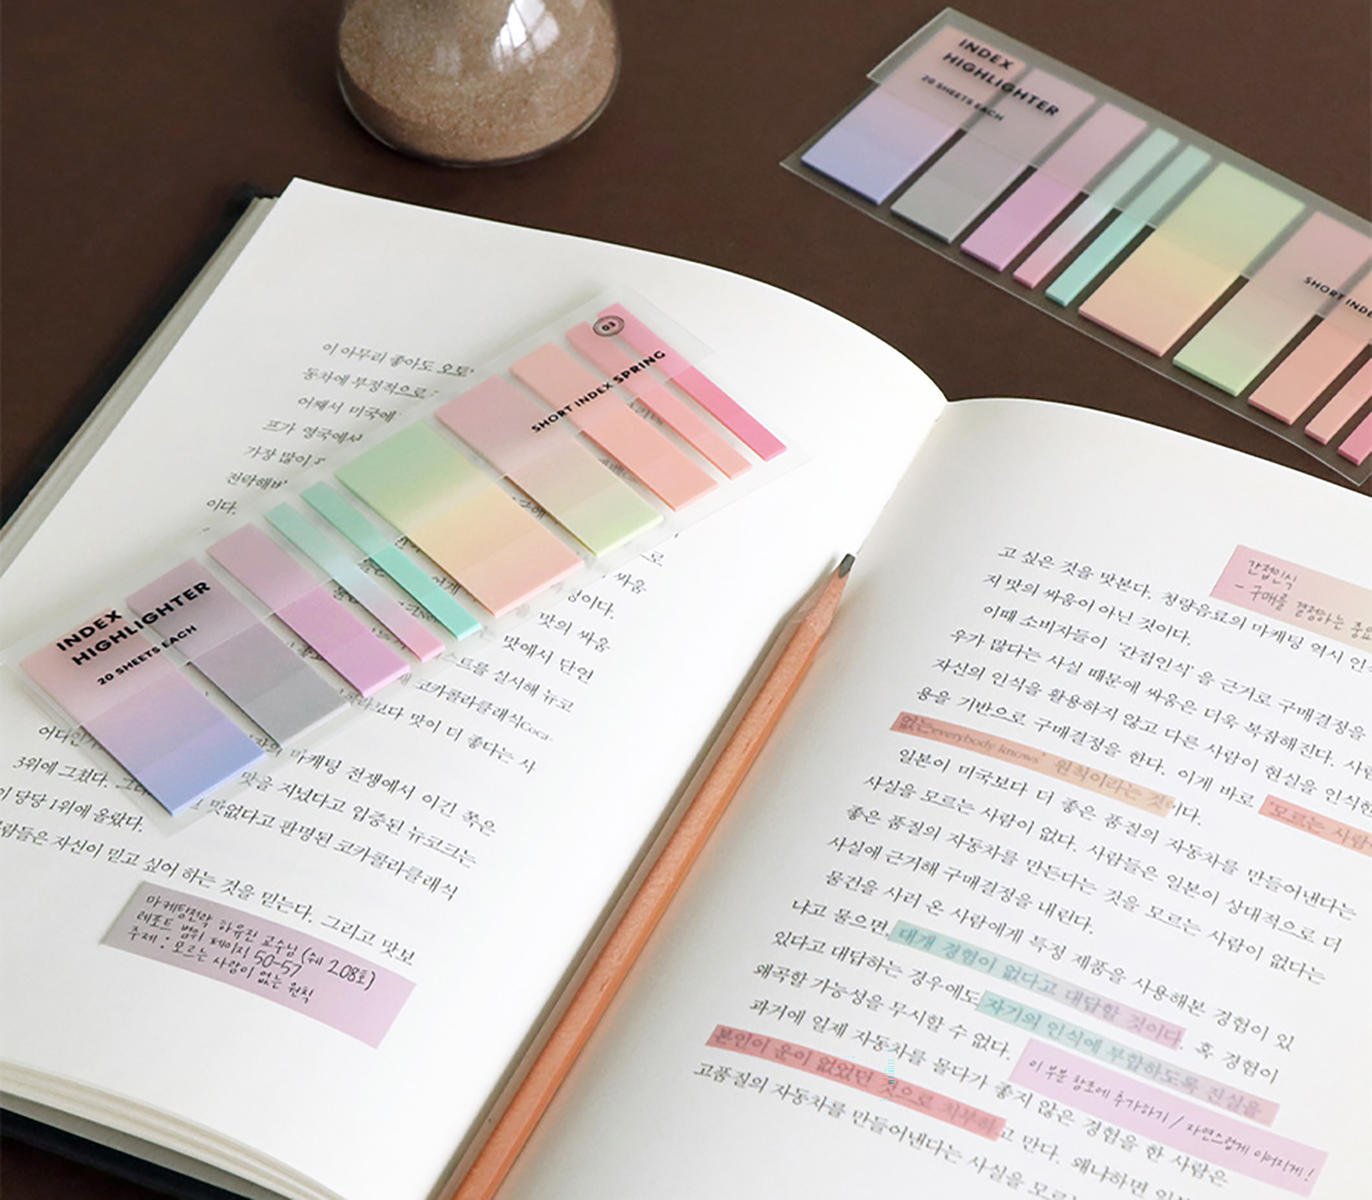 INDEX
HIGHLIGHTER
20 SHEETS EACH
SHORT INDEX
03
SHORT INDEX SPRING
INDEX
HIGHLIGHTER
20 SHEETS EACH
이 아무리 좋아도 오토
동차에 부정적으로
어째서 미국에
프가 영국에서
가장 많이
전락해버
이다.
싸움
맛의 싸움
맛에서 단연
스트를 실시해 뉴코
코카콜라클래식Coca-
보다 맛이 더 좋다는 사
마케팅 전쟁에서 이긴 쪽은
3위에 그쳤다.
맛을 지녔다고 입증된 뉴코크는
당당 1위에 올랐다.
맛없다고 판명된 코카콜라클래식
람들은 자신이 믿고 싶어 하는 것을 믿는다. 그리고 맛보
마케팅전략 하유진 교수님 (쉐 208호)
레포트 범위 페이지 50-57
주제 : 모르는 사람이 없는 원칙
고 싶은 것을 맛본다. 청량음료의 마케팅 역시 인
저 맛의 싸움이 아닌 것이다.
간접인식
- 구매를 결정하는 중요
이때 소비자들이 '간접인식'을 근거로 구매결정을
우가 많다는 사실 때문에 싸움은 더욱 복잡해진다. 사람
자신의 인식을 활용하지 않고 다른 사람이 현실을 인식한
용을 기반으로 구매결정을 한다. 이게 바로 '모르는 사람
없는everybody knows' 원칙이라는 것이다.
일본이 미국보다 더 좋은 품질의 자동차를 만들어낸다는
사실을 모르는 사람이 없다. 사람들은 일본이 상대적으로 더
좋은 품질의 자동차를 만든다는 것을 모르는 사람이 없다는
사실에 근거해 구매결정을 내린다.
물건을 사러 온 사람에게 특정 제품을 사용해본 경험이 있
냐고 물으면 대개 경험이 없다고 대답할 것이다. 혹 경험이
있다고 대답하는 경우에도 자기의 인식에 부합하도록 진실을
왜곡할 가능성을 무시할 수 없다.
이 부분 참조에 추가하기 / 자연스럽게 이어지게!
과거에 일제 자동차를 몰다가 좋지 않은 경험을 한 사람은
본인이 운이 없었던 것으로 치부하고 만다. 왜냐하면 일
고품질의 자동차를 만들어낸다는 사실을 모르